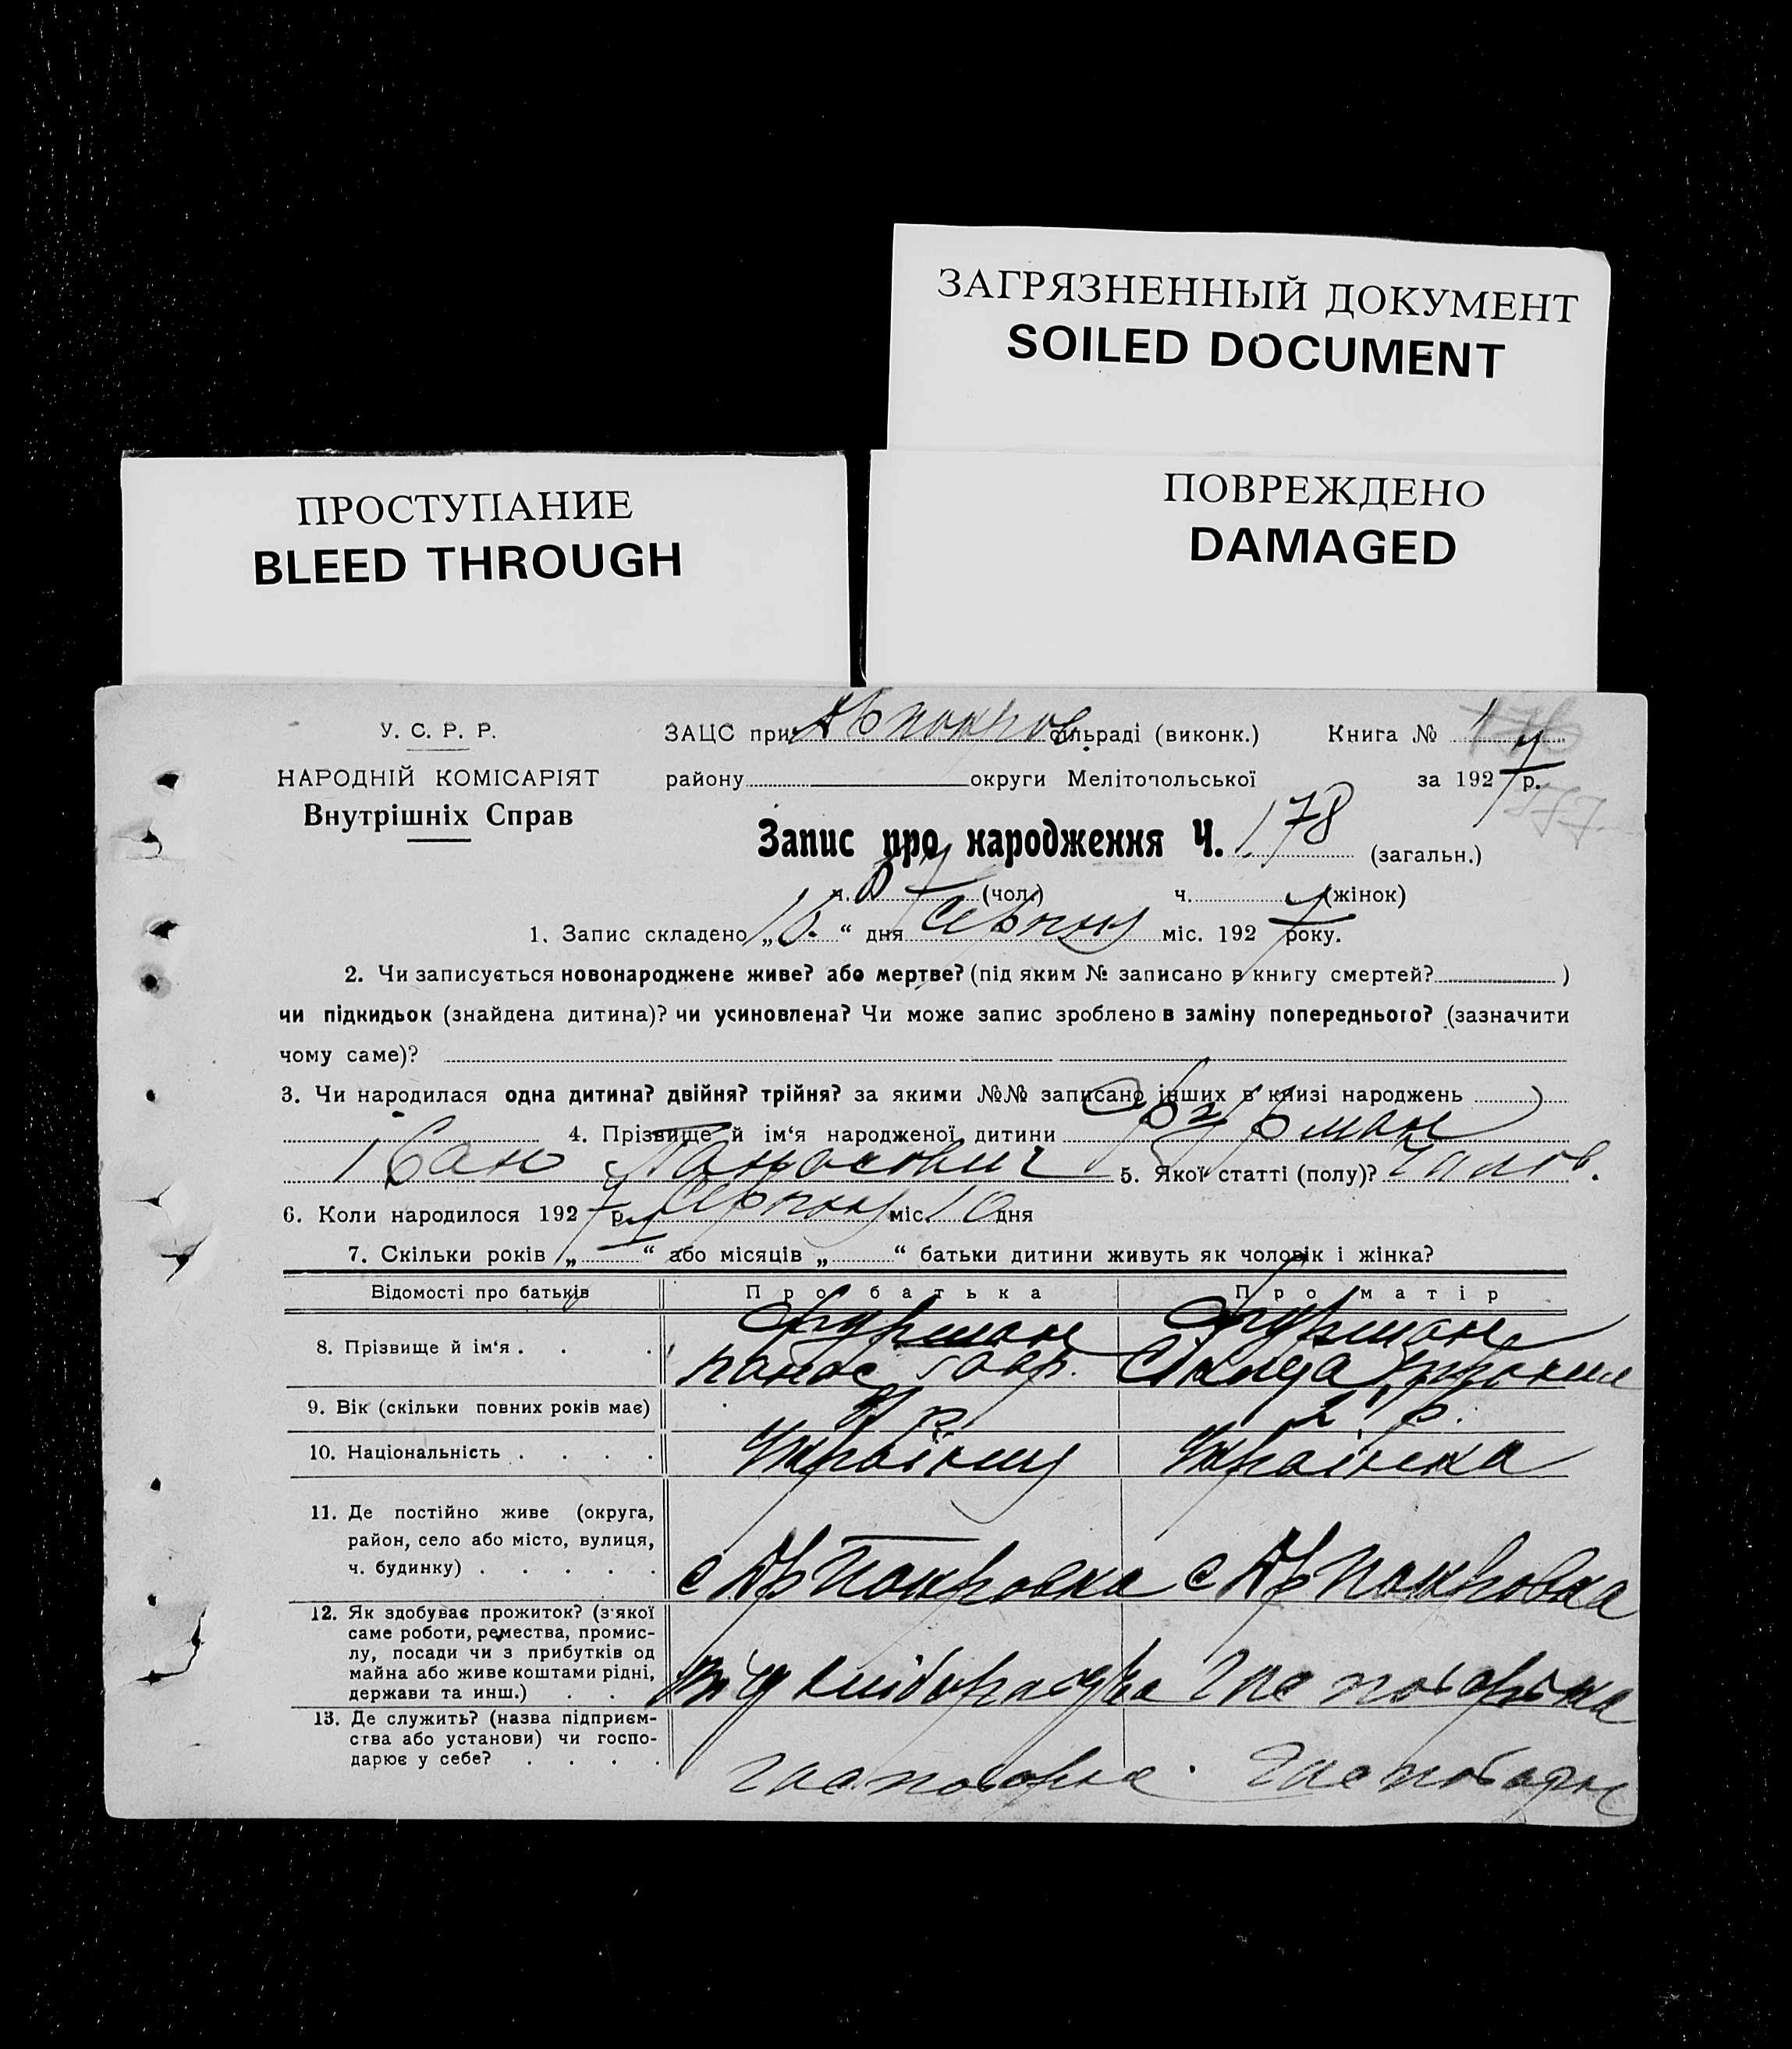 ЗАГРЯЗНЕННЫЙ ДОКУМЕНТ
SOILED DOCUMENT
ПРОСТУПАНИЕ
BLEED THROUGH
ПОВРЕЖДЕНО
DAMAGED
У. С. Р. Р.
НАРОДНІЙ КОМІСАРІЯТ
Внутрішніх Справ
ЗАЦС при сільраді (виконк.) Книга № 1
району округи Мелітопольської за 1927 р.
Запис про народження Ч. 178 (загальн.)
ч. (чол.) ч. (жінок)
1. Запис складено „16.“ дня Серпня міс. 1927 року.
2. Чи записується новонароджене живе? або мертве? (під яким № записано в книгу смертей? )
чи підкидьок (знайдена дитина)? чи усиновлена? Чи може запис зроблено в заміну попереднього? (зазначити
чому саме)?
3. Чи народилася одна дитина? двійня? трійня? за якими №№ записано інших в книзі народжень
4. Прізвище й ім‘я народженої дитини Фурман
Іван Панасович 5. Якої статті (полу)? Чолов.
6. Коли народилося 1927 р. Серпня міс. 10 дня
7. Скільки років „ “ або місяців „ “ батьки дитини живуть як чоловік і жінка?
Відомості про батьків Про батька Про матір
8. Прізвище й ім‘я . . . Фурман Фурман
Панас Гавр.
9. Вік (скільки повних років має) р. 21 р.
10. Національність . . . . Українец Українка
11. Де постійно живе (округа,
район, село або місто, вулиця,
ч. будинку) . . . . . с Покровка с Покровка
12. Як здобуває прожиток? (з якої
саме роботи, ремества, промис-
лу, посади чи з прибутків од
майна або живе коштами рідні,
держави та инш.) . . .
13. Де служить? (назва підприєм-
ства або установи) чи госпо-
дарює у себе? . . . .